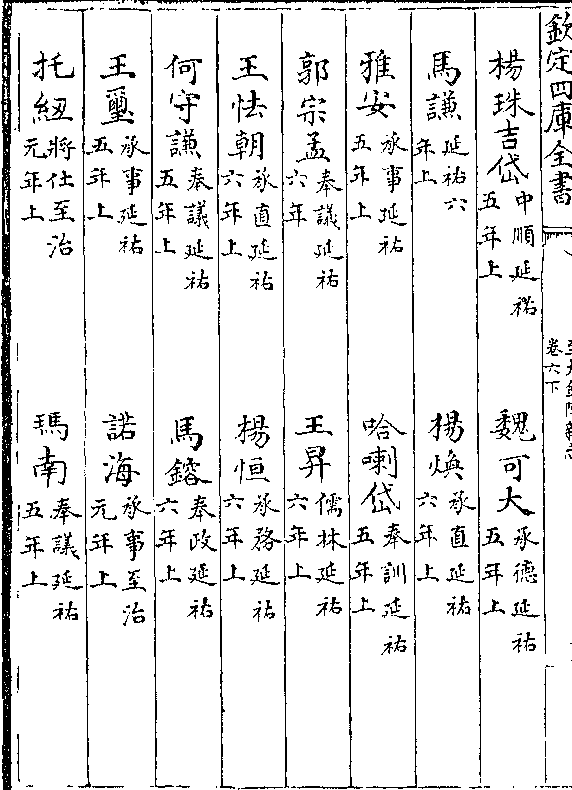 欽定四庫全書
卷六下
楊珠吉岱 中順延祐五年上 魏可大 承德延祐五年上
馬謙 延祐六年上 楊煥 承直延祐六年上
雅安 承事延祐五年上 哈喇岱 奉訓延祐五年上
郭宗孟 奉議延祐六年 王昇 儒林延祐六年上
王怯朝 承直延祐六年上 楊恒 承務延祐六年上
何守謙 奉議延祐五年上 馬鎔 奉政延祐六年上
王璽 承事延祐五年上 諾海 承事至治元年上
托紐 將仕至治元年上 瑪南 奉議延祐五年上